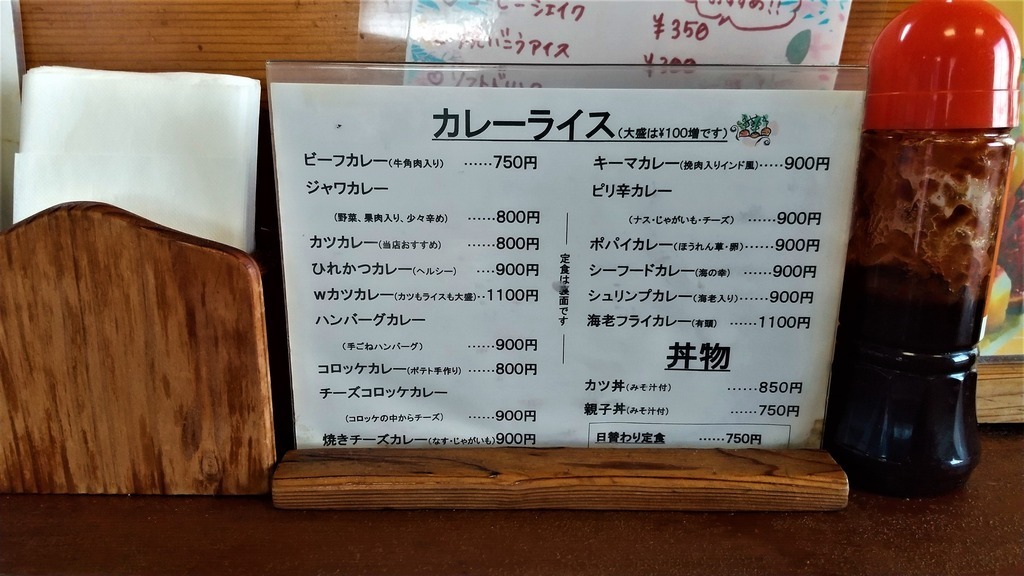 ーシェイク
おすすめ!!
¥350
バニラアイス
¥300
カレーライス(大盛は¥100増です)
ビーフカレー(牛角肉入り)……750円
ジャワカレー
(野菜、果肉入り、少々辛め)……800円
カツカレー(当店おすすめ)……800円
ひれかつカレー(ヘルシー)…‥900円
wカツカレー(カツもライスも大盛)‥1100円
ハンバーグカレー
(手ごねハンバーグ)……900円
コロッケカレー(ポテト手作り)……800円
チーズコロッケカレー
(コロッケの中からチーズ)……900円
焼きチーズカレー(なす・じゃがいも)900円
定食は裏面です
キーマカレー(挽肉入りインド風)……900円
ピリ辛カレー
(ナス・じゃがいも・チーズ)……900円
ポパイカレー(ほうれん草・卵)……900円
シーフードカレー(海の幸)……900円
シュリンプカレー(海老入り)……900円
海老フライカレー(有頭)……1100円
丼物
カツ丼(みそ汁付)……850円
親子丼(みそ汁付)……750円
日替わり定食……750円